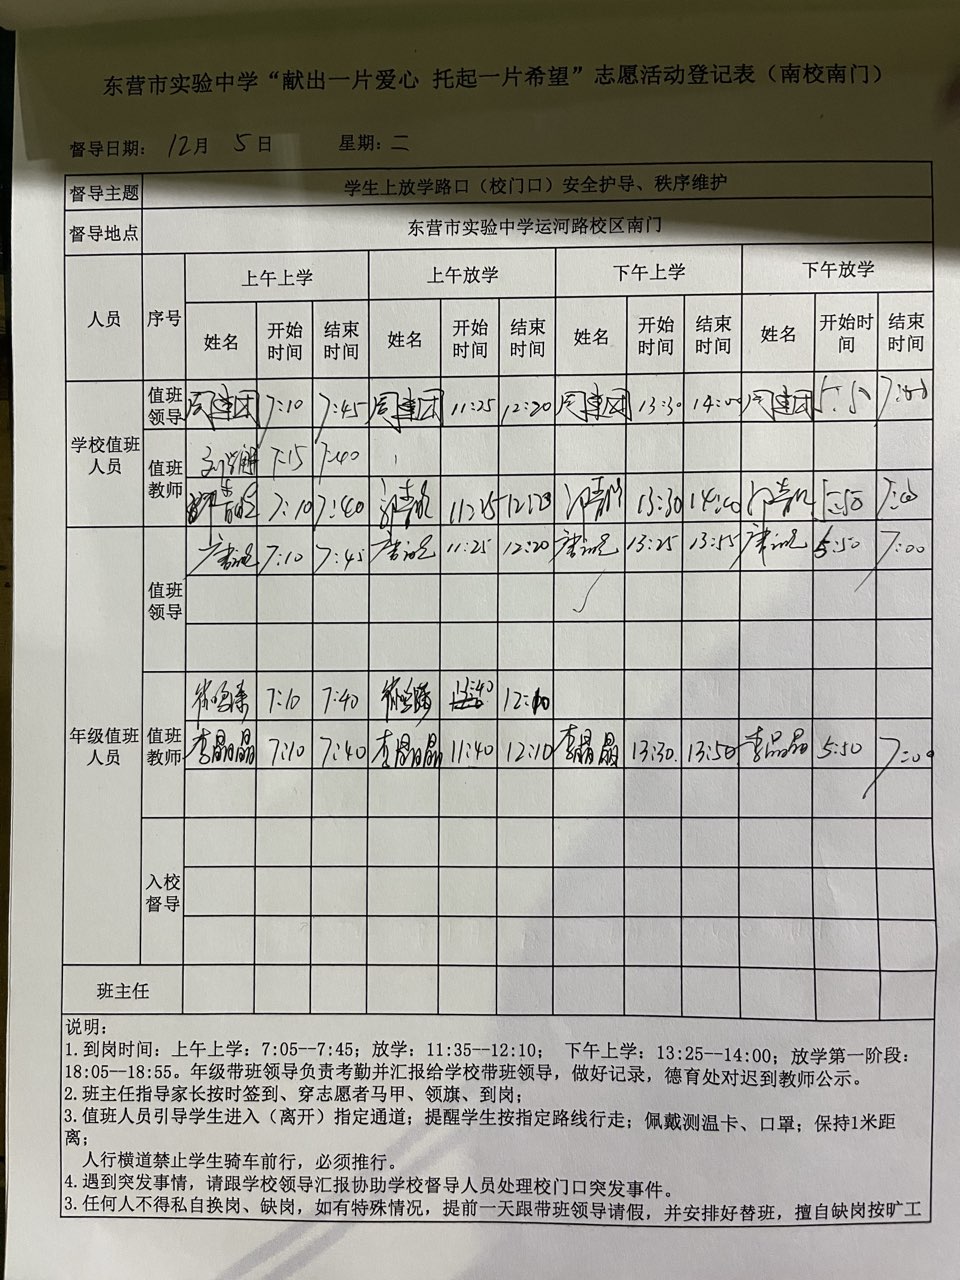 东营市实验中学“献出一片爱心 托起一片希望”志愿活动登记表（南校南门）
督导日期： 12月 5日 星期：二
督导主题 学生上放学路口（校门口）安全护导、秩序维护
督导地点 东营市实验中学运河路校区南门
人员 序号 上午上学 上午放学 下午上学 下午放学
姓名 开始时间 结束时间 姓名 开始时间 结束时间 姓名 开始时间 结束时间 姓名 开始时间 结束时间
学校值班人员 值班领导 周建团 7:10 7:45 周建团 11:25 12:20 周建团 13:30 14:00 周建团 5:50 7:00
值班教师 7:15 7:40
7:10 7:40 11:25 12:20 13:30 14:00 5:50 7:00
年级值班人员 值班领导 7:10 7:45 11:25 12:20 13:25 13:55 5:50 7:00
值班教师 7:10 7:40
李晶晶 7:10 7:40 李晶晶 11:40 12:10 李晶晶 13:30 13:50 李晶晶 5:50 7:00
入校督导
班主任
说明：
1.到岗时间：上午上学：7:05--7:45；放学：11:35--12:10； 下午上学：13:25--14:00；放学第一阶段：
18:05--18:55。年级带班领导负责考勤并汇报给学校带班领导，做好记录，德育处对迟到教师公示。
2.班主任指导家长按时签到、穿志愿者马甲、领旗、到岗；
3.值班人员引导学生进入（离开）指定通道；提醒学生按指定路线行走；佩戴测温卡、口罩；保持1米距
离；
人行横道禁止学生骑车前行，必须推行。
4.遇到突发事情，请跟学校领导汇报协助学校督导人员处理校门口突发事件。
3.任何人不得私自换岗、缺岗，如有特殊情况，提前一天跟带班领导请假，并安排好替班，擅自缺岗按旷工